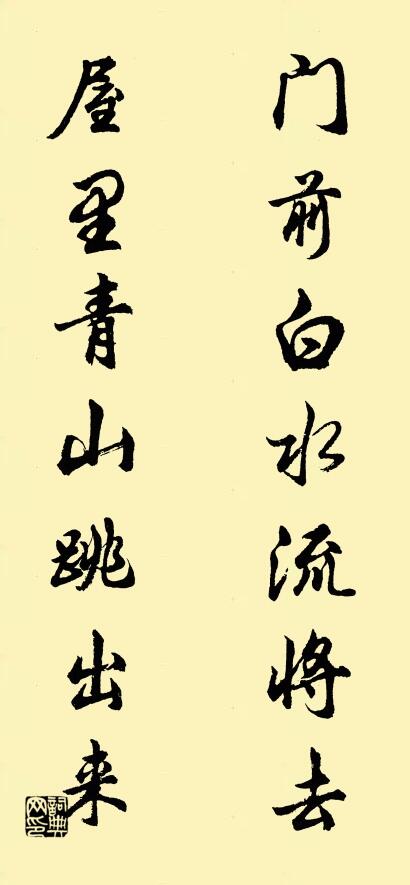 门前白水流将去
屋里青山跳出来
词典网印